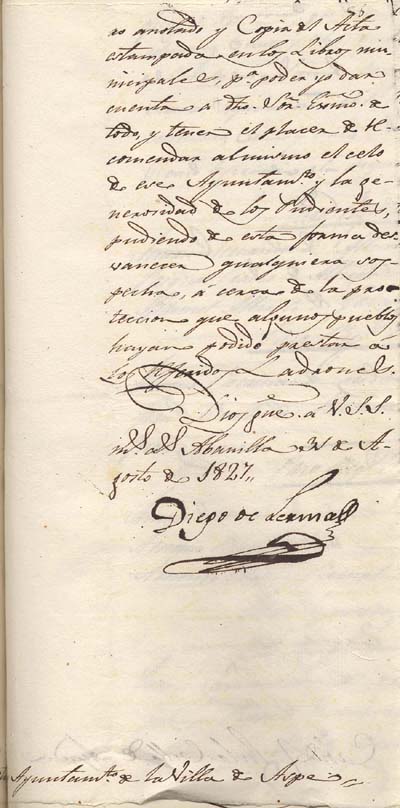 ro anotado y Copia del Acta
estampada en los Libros mu-
nicipales, pa. poder yo dar
cuenta á dho. Sor. Exmo. de
todo, y tener el placer de re-
comendar al mismo el celo
de ese Ayuntamto. y la ge-
nerosidad de los Pudientes,
pudiendo de esta forma des-
vanecer qualquiera sos-
pecha, á cerca de la pro-
teccion que algunos pueblos
hayan podido prestar a
los referidos Ladrones.
Dios gue. á V.S.S.
ms. as. Abanilla 31 de A-
gosto de 1827,,
Diego de Lerma
Ayuntamto. de la Villa de Aspe